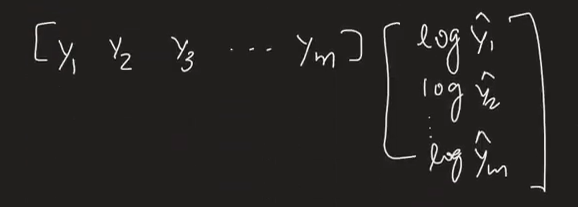 [y₁ y₂ y₃ ... yₘ] [log ŷ₁
log ŷ₂
⋮
log ŷₘ]